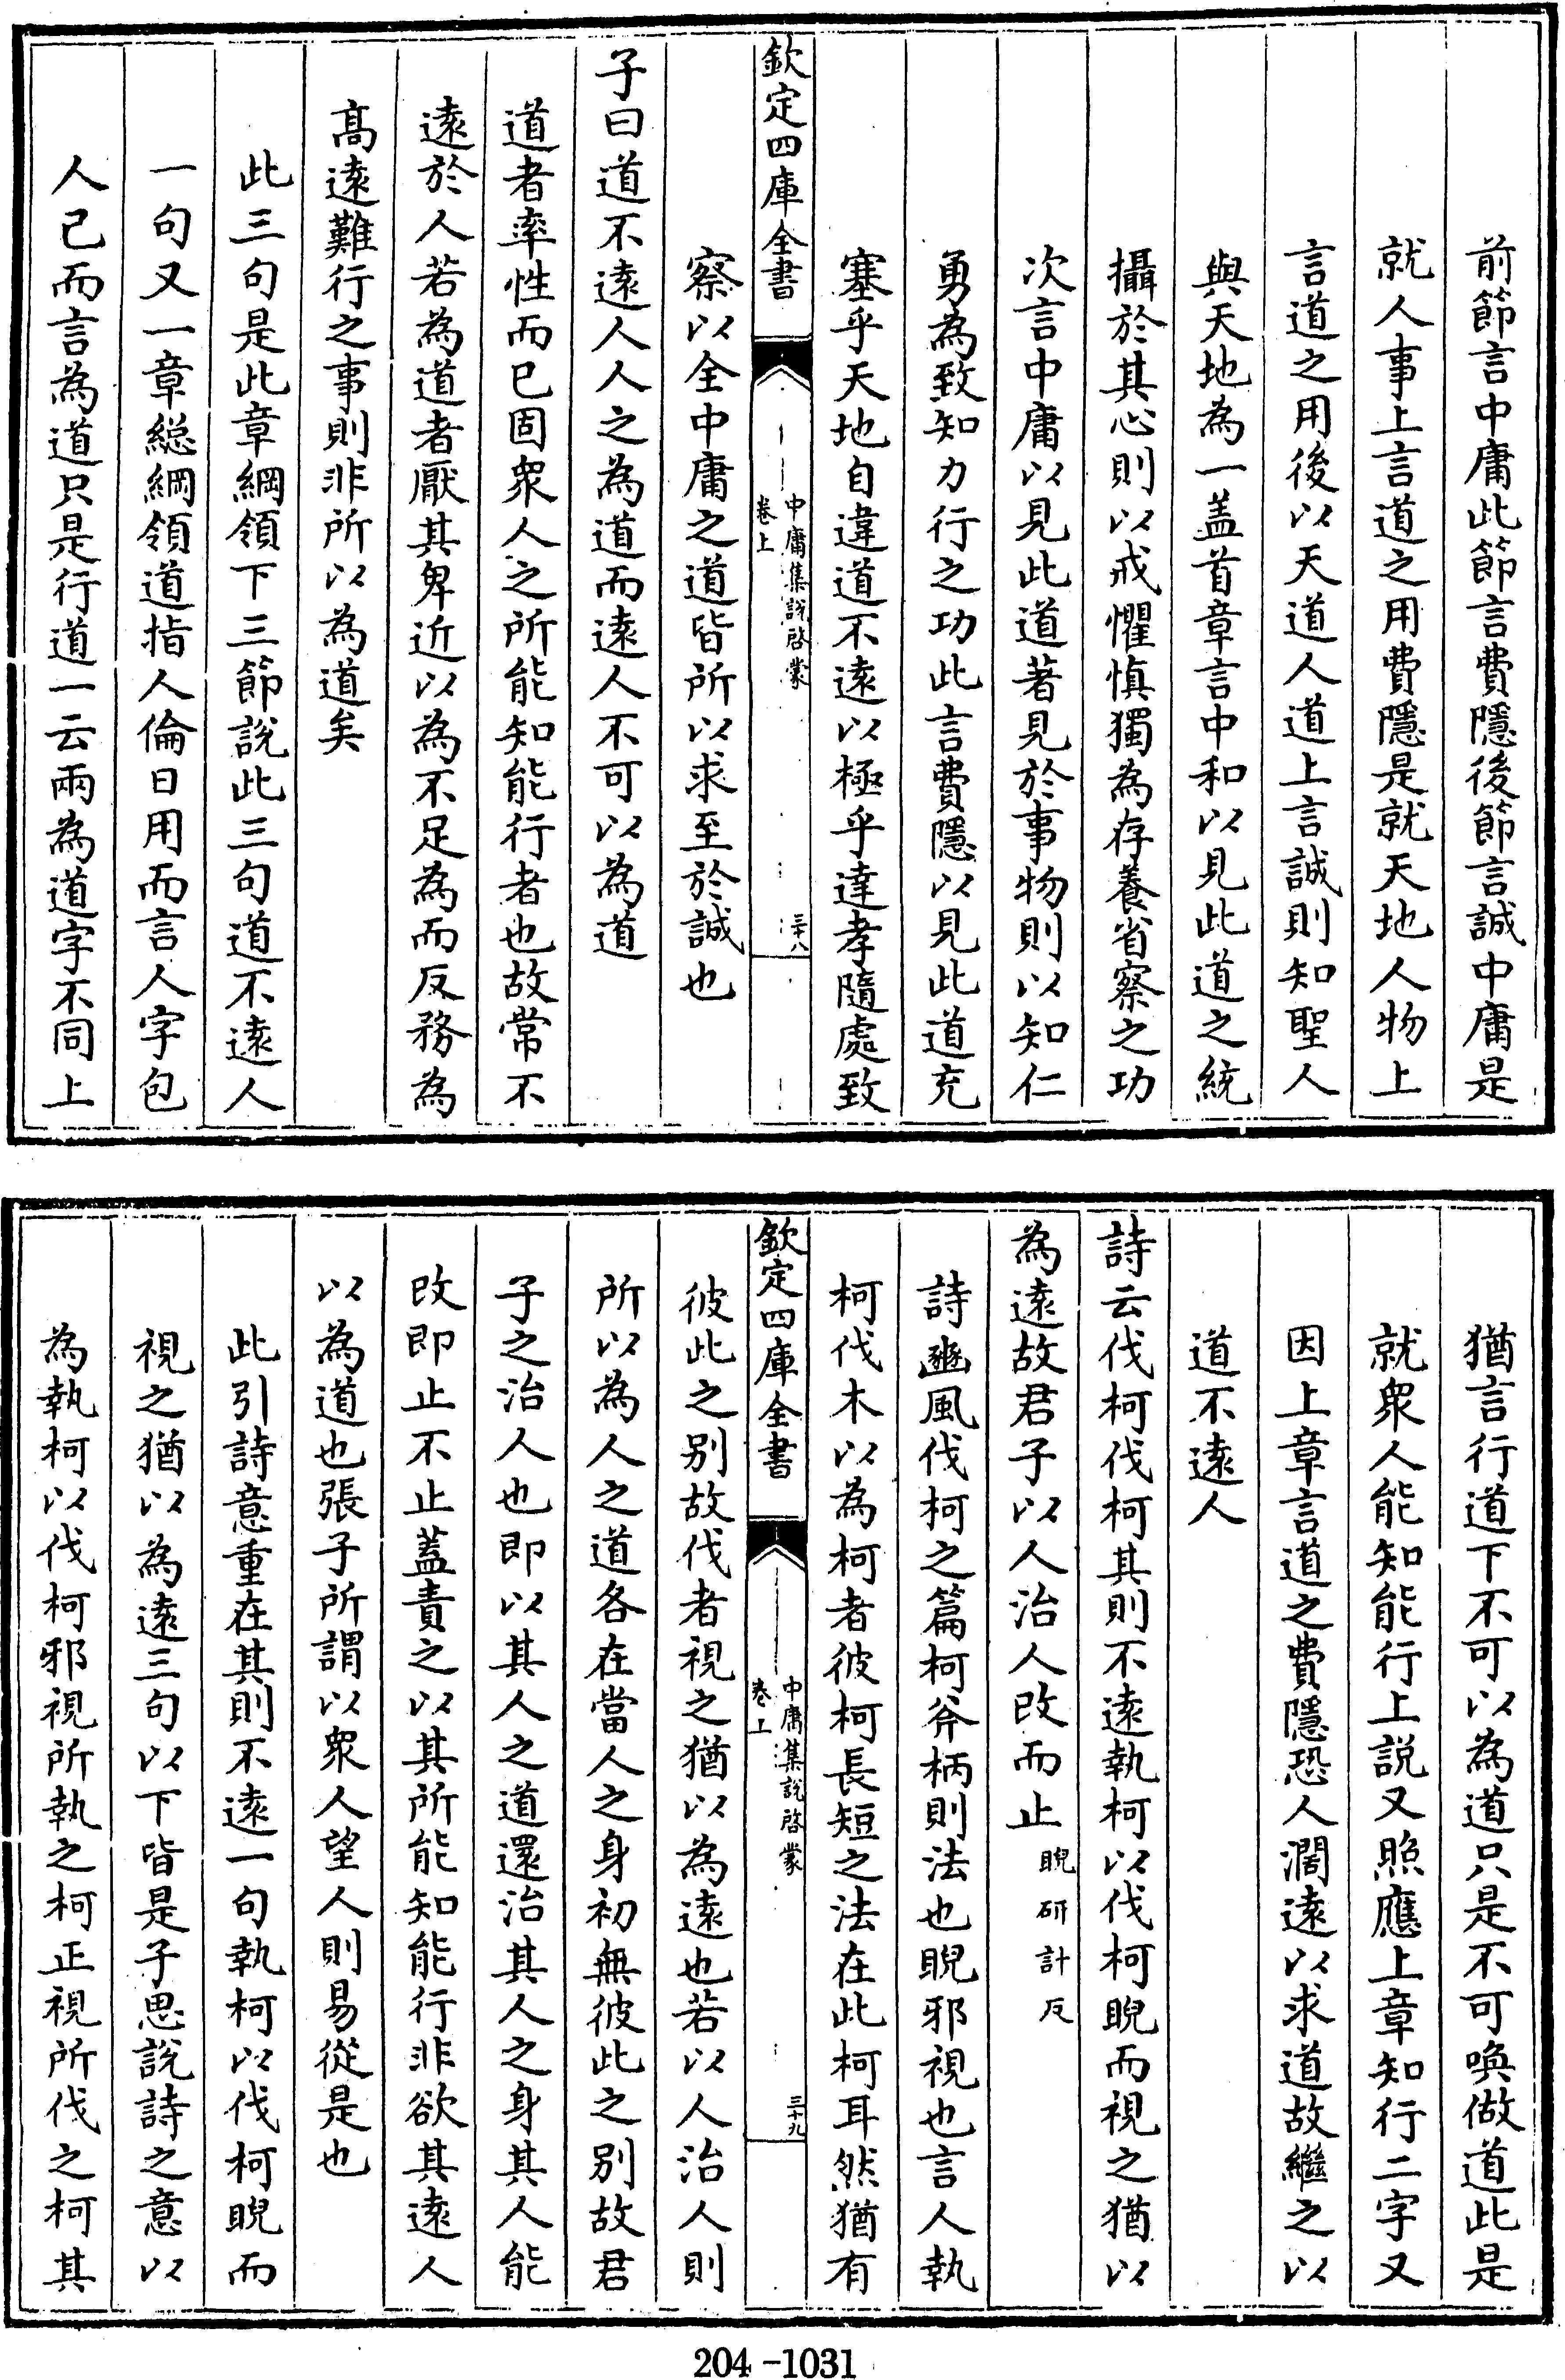 前節言中庸此節言費隱後節言誠中庸是
就人事上言道之用費隱是就天地人物上
言道之用後以天道人道上言誠則知聖人
與天地為一盖首章言中和以見此道之統
攝於其心則以戒懼慎獨為存養省察之功
次言中庸以見此道著見於事物則以知仁
勇為致知力行之功此言費隱以見此道充
塞乎天地自違道不遠以極乎達孝隨處致
欽定四庫全書
中庸集說啓蒙
卷上
三十八
察以全中庸之道皆所以求至於誠也
子曰道不遠人人之為道而遠人不可以為道
道者率性而已固衆人之所能知能行者也故常不
遠於人若為道者厭其卑近以為不足為而反務為
高遠難行之事則非所以為道矣
此三句是此章綱領下三節說此三句道不遠人
一句又一章総綱領道指人倫日用而言人字包
人己而言為道只是行道一云兩為道字不同上
猶言行道下不可以為道只是不可喚做道此是
就衆人能知能行上說又照應上章知行二字又
因上章言道之費隱恐人濶遠以求道故繼之以
道不遠人
詩云伐柯伐柯其則不遠執柯以伐柯睨而視之猶以
為遠故君子以人治人改而止睨研計反
詩豳風伐柯之篇柯斧柄則法也睨邪視也言人執
柯伐木以為柯者彼柯長短之法在此柯耳然猶有
欽定四庫全書
中庸集說啓蒙
卷上
三十九
彼此之别故伐者視之猶以為遠也若以人治人則
所以為人之道各在當人之身初無彼此之别故君
子之治人也即以其人之道還治其人之身其人能
改即止不止蓋責之以其所能知能行非欲其遠人
以為道也張子所謂以衆人望人則易從是也
此引詩意重在其則不遠一句執柯以伐柯睨而
視之猶以為遠三句以下皆是子思說詩之意以
為執柯以伐柯邪視所執之柯正視所伐之柯其
204-1031